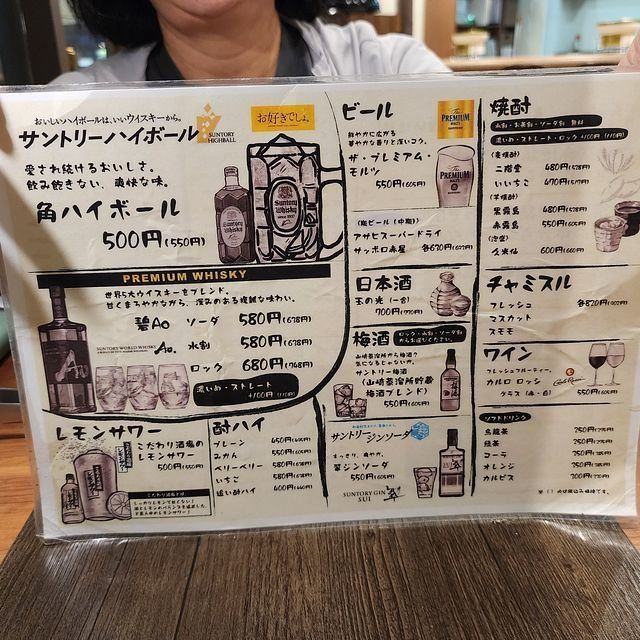 おいしいハイボールは、いいウイスキーから。
サントリーハイボール
SUNTORY
HIGHBALL
お好きでしょ。
愛され続けるおいしさ。
飲み飽きない、爽快な味。
角ハイボール
500円(550円)
Suntory
Whisky
PREMIUM WHISKY
世界5大ウイスキーをブレンド。
甘くまろやかながら、深みのある複雑な味わい。
碧Ao ソーダ 580円(638円)
SUNTORY WORLD WHISKY
Ao 水割 580円(638円)
ロック 680円(748円)
濃いめ・ストレート
+100円(110円)
レモンサワー
こだわり酒場の
レモンサワー
500円(550円)
酎ハイ
プレーン 450円
みかん 550円(605円)
ベリーベリー 580円(638円)
いちご 580円(638円)
追い酎ハイ 400円(440円)
ビール
The
PREMIUM
MALT'S
華やかな香りと深いコク。
ザ・プレミアム・
モルツ
550円(605円)
(瓶ビール(中瓶))
アサヒスーパードライ
サッポロ赤星
日本酒
玉の光(一合)
700円(770円)
梅酒
ロック・水割・ソーダ割
からお選びください。
山崎蒸溜所梅酒?
気になるじゃないか。
サントリー梅酒
(山崎蒸溜所貯蔵
梅酒ブレンド)
550円(605円)
サントリージンソーダ
すっきり、爽やか。
翠ジンソーダ
550円(605円)
SUNTORY GIN
SUI
翠
焼酎
水割・お茶割・ソーダ割 無料
濃いめ・ストレート・ロック +100円(110円)
(麦焼酎)
二階堂 480円(528円)
いいちこ 470円(517円)
(芋焼酎)
黒霧島 480円(528円)
赤霧島 550円(605円)
(泡盛)
久米仙 600円(660円)
チャミスル
フレッシュ 各820円(902円)
マスカット
スモモ
ワイン
フレッシュフルーティー。
カルロ ロッシ
Carlo Rossi
グラス(赤・白) 550円(605円)
ソフトドリンク
烏龍茶 250円(275円)
緑茶 250円(275円)
コーラ 350円(385円)
オレンジ 350円(385円)
カルピス 300円(330円)
※( )の中は税込み価格です。